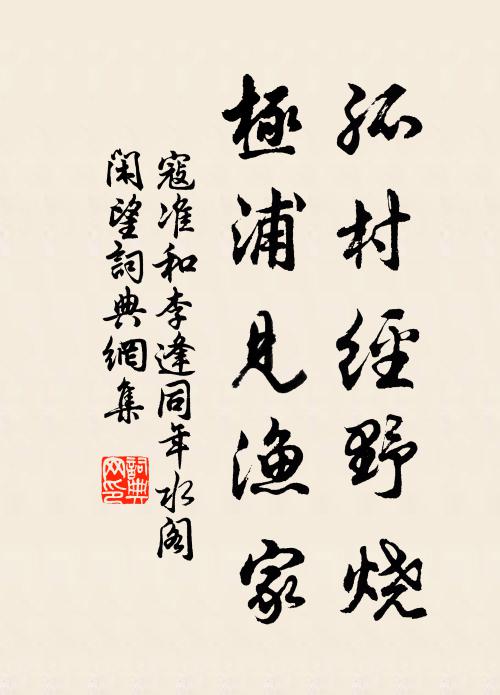 孤村經野燒
極浦見漁家
寇准和李逢同年水閣
閑望詞典網集
詞典网印